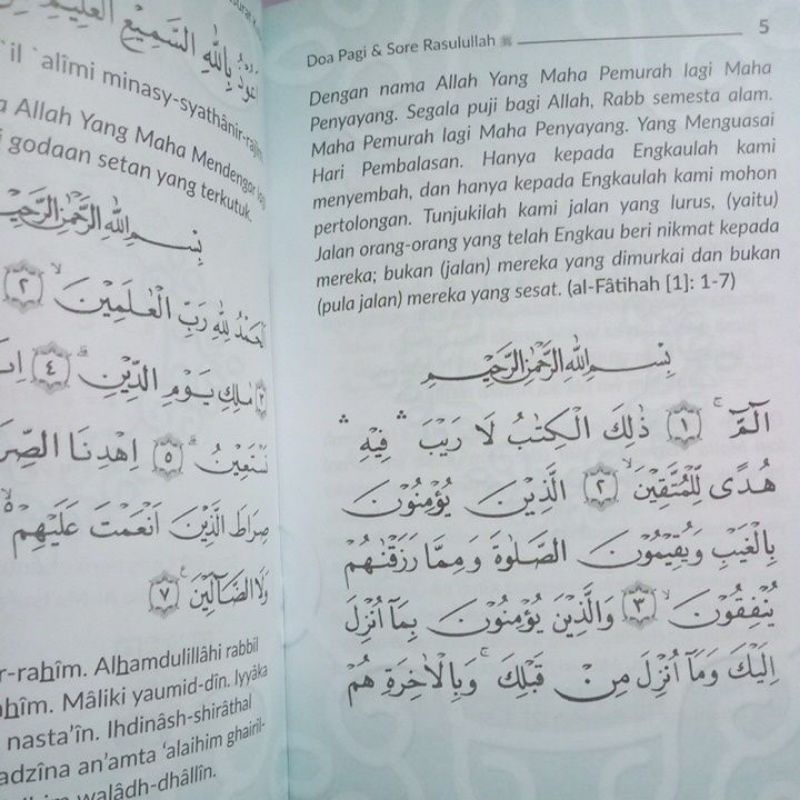 أعوذ بالله السميع العليم
il `alîmi minasy-syathânir-rajîm
Allah Yang Maha Mendengar lagi
godaan setan yang terkutuk.
بِسْمِ اللّٰهِ الرَّحْمٰنِ الرَّحِيْمِ
الْحَمْدُ لِلّٰهِ رَبِّ الْعٰلَمِيْنَۙ ﴿٢﴾
مٰلِكِ يَوْمِ الدِّيْنِۗ ﴿٤﴾
نَسْتَعِيْنُۗ ﴿٥﴾ اِهْدِنَا
صِرَاطَ الَّذِيْنَ اَنْعَمْتَ عَلَيْهِمْ ەۙ
وَلَا الضَّاۤلِّيْنَ ﴿٧﴾
r-rahîm. Alhamdulillâhi rabbil
hîm. Mâliki yaumid-dîn. Iyyâka
nasta'în. Ihdinâsh-shirâthal
adzîna an'amta 'alaihim ghairil-
waladh-dhâllîn.
Doa Pagi & Sore Rasulullah ﷺ 5
Dengan nama Allah Yang Maha Pemurah lagi Maha
Penyayang. Segala puji bagi Allah, Rabb semesta alam.
Maha Pemurah lagi Maha Penyayang. Yang Menguasai
Hari Pembalasan. Hanya kepada Engkaulah kami
menyembah, dan hanya kepada Engkaulah kami mohon
pertolongan. Tunjukilah kami jalan yang lurus, (yaitu)
Jalan orang-orang yang telah Engkau beri nikmat kepada
mereka; bukan (jalan) mereka yang dimurkai dan bukan
(pula jalan) mereka yang sesat. (al-Fâtihah [1]: 1-7)
بِسْمِ اللّٰهِ الرَّحْمٰنِ الرَّحِيْمِ
الۤمّۤ ۚ ﴿١﴾ ذٰلِكَ الْكِتٰبُ لَا رَيْبَ ۛ فِيْهِ ۛ
هُدًى لِّلْمُتَّقِيْنَۙ ﴿٢﴾ الَّذِيْنَ يُؤْمِنُوْنَ
بِالْغَيْبِ وَيُقِيْمُوْنَ الصَّلٰوةَ وَمِمَّا رَزَقْنٰهُمْ
يُنْفِقُوْنَۙ ﴿٣﴾ وَالَّذِيْنَ يُؤْمِنُوْنَ بِمَآ اُنْزِلَ
اِلَيْكَ وَمَآ اُنْزِلَ مِنْ قَبْلِكَ ۚ وَبِالْاٰخِرَةِ هُمْ